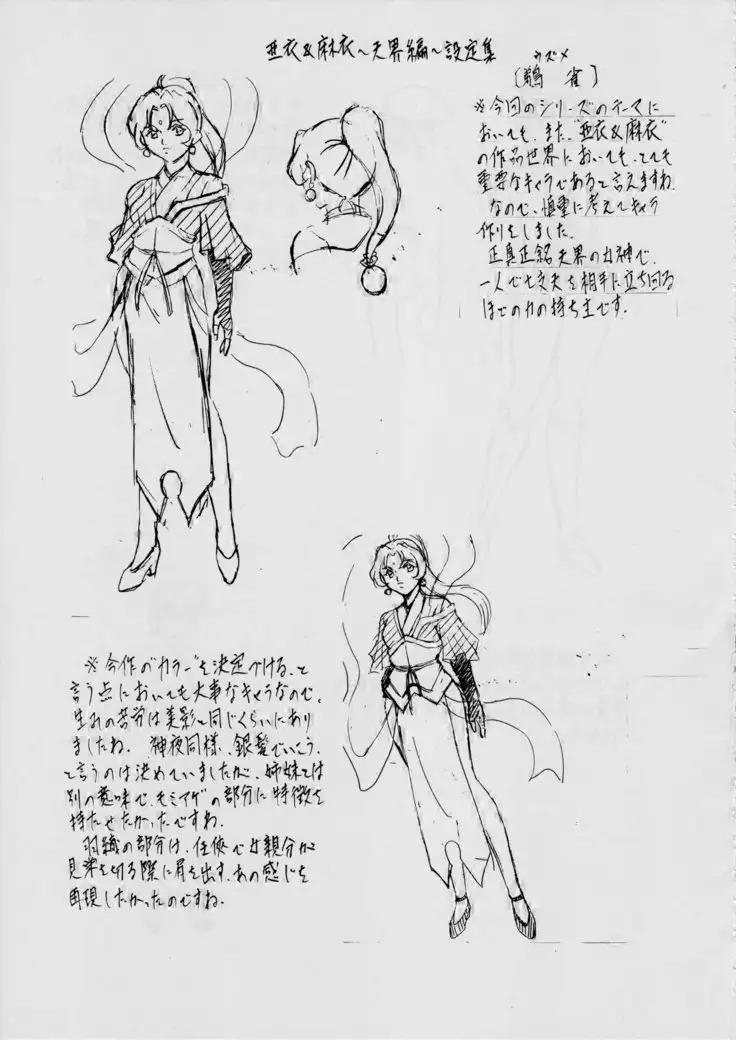 亜衣&麻衣〜天界編〜設定集
ウズメ
〔鵲 雀〕
※今回のシリーズのテーマに
おいても、また、"亜衣&麻衣"
の作品世界においても、とても
重要なキャラであると言えますね。
なので、慎重に考えてキャラ
作りをしました。
正真正銘天界の女神で、
一人で丈夫を相手に立ち回る
ほどの力の持ち主です。
※今作の"カラー"を決定づける、と
言う点においても大事なキャラなので、
生みの苦労は美影と同じくらいにあり
ましたね。 神夜同様、銀髪でいこう、
と言うのは決めていましたが、姉妹とは
別の意味で、モミアゲの部分に特徴を
持たせたかったですね。
羽織の部分は、任侠で女親分が
見栄を切る際に肩を出す、あの感じを
再現したかったのですね。